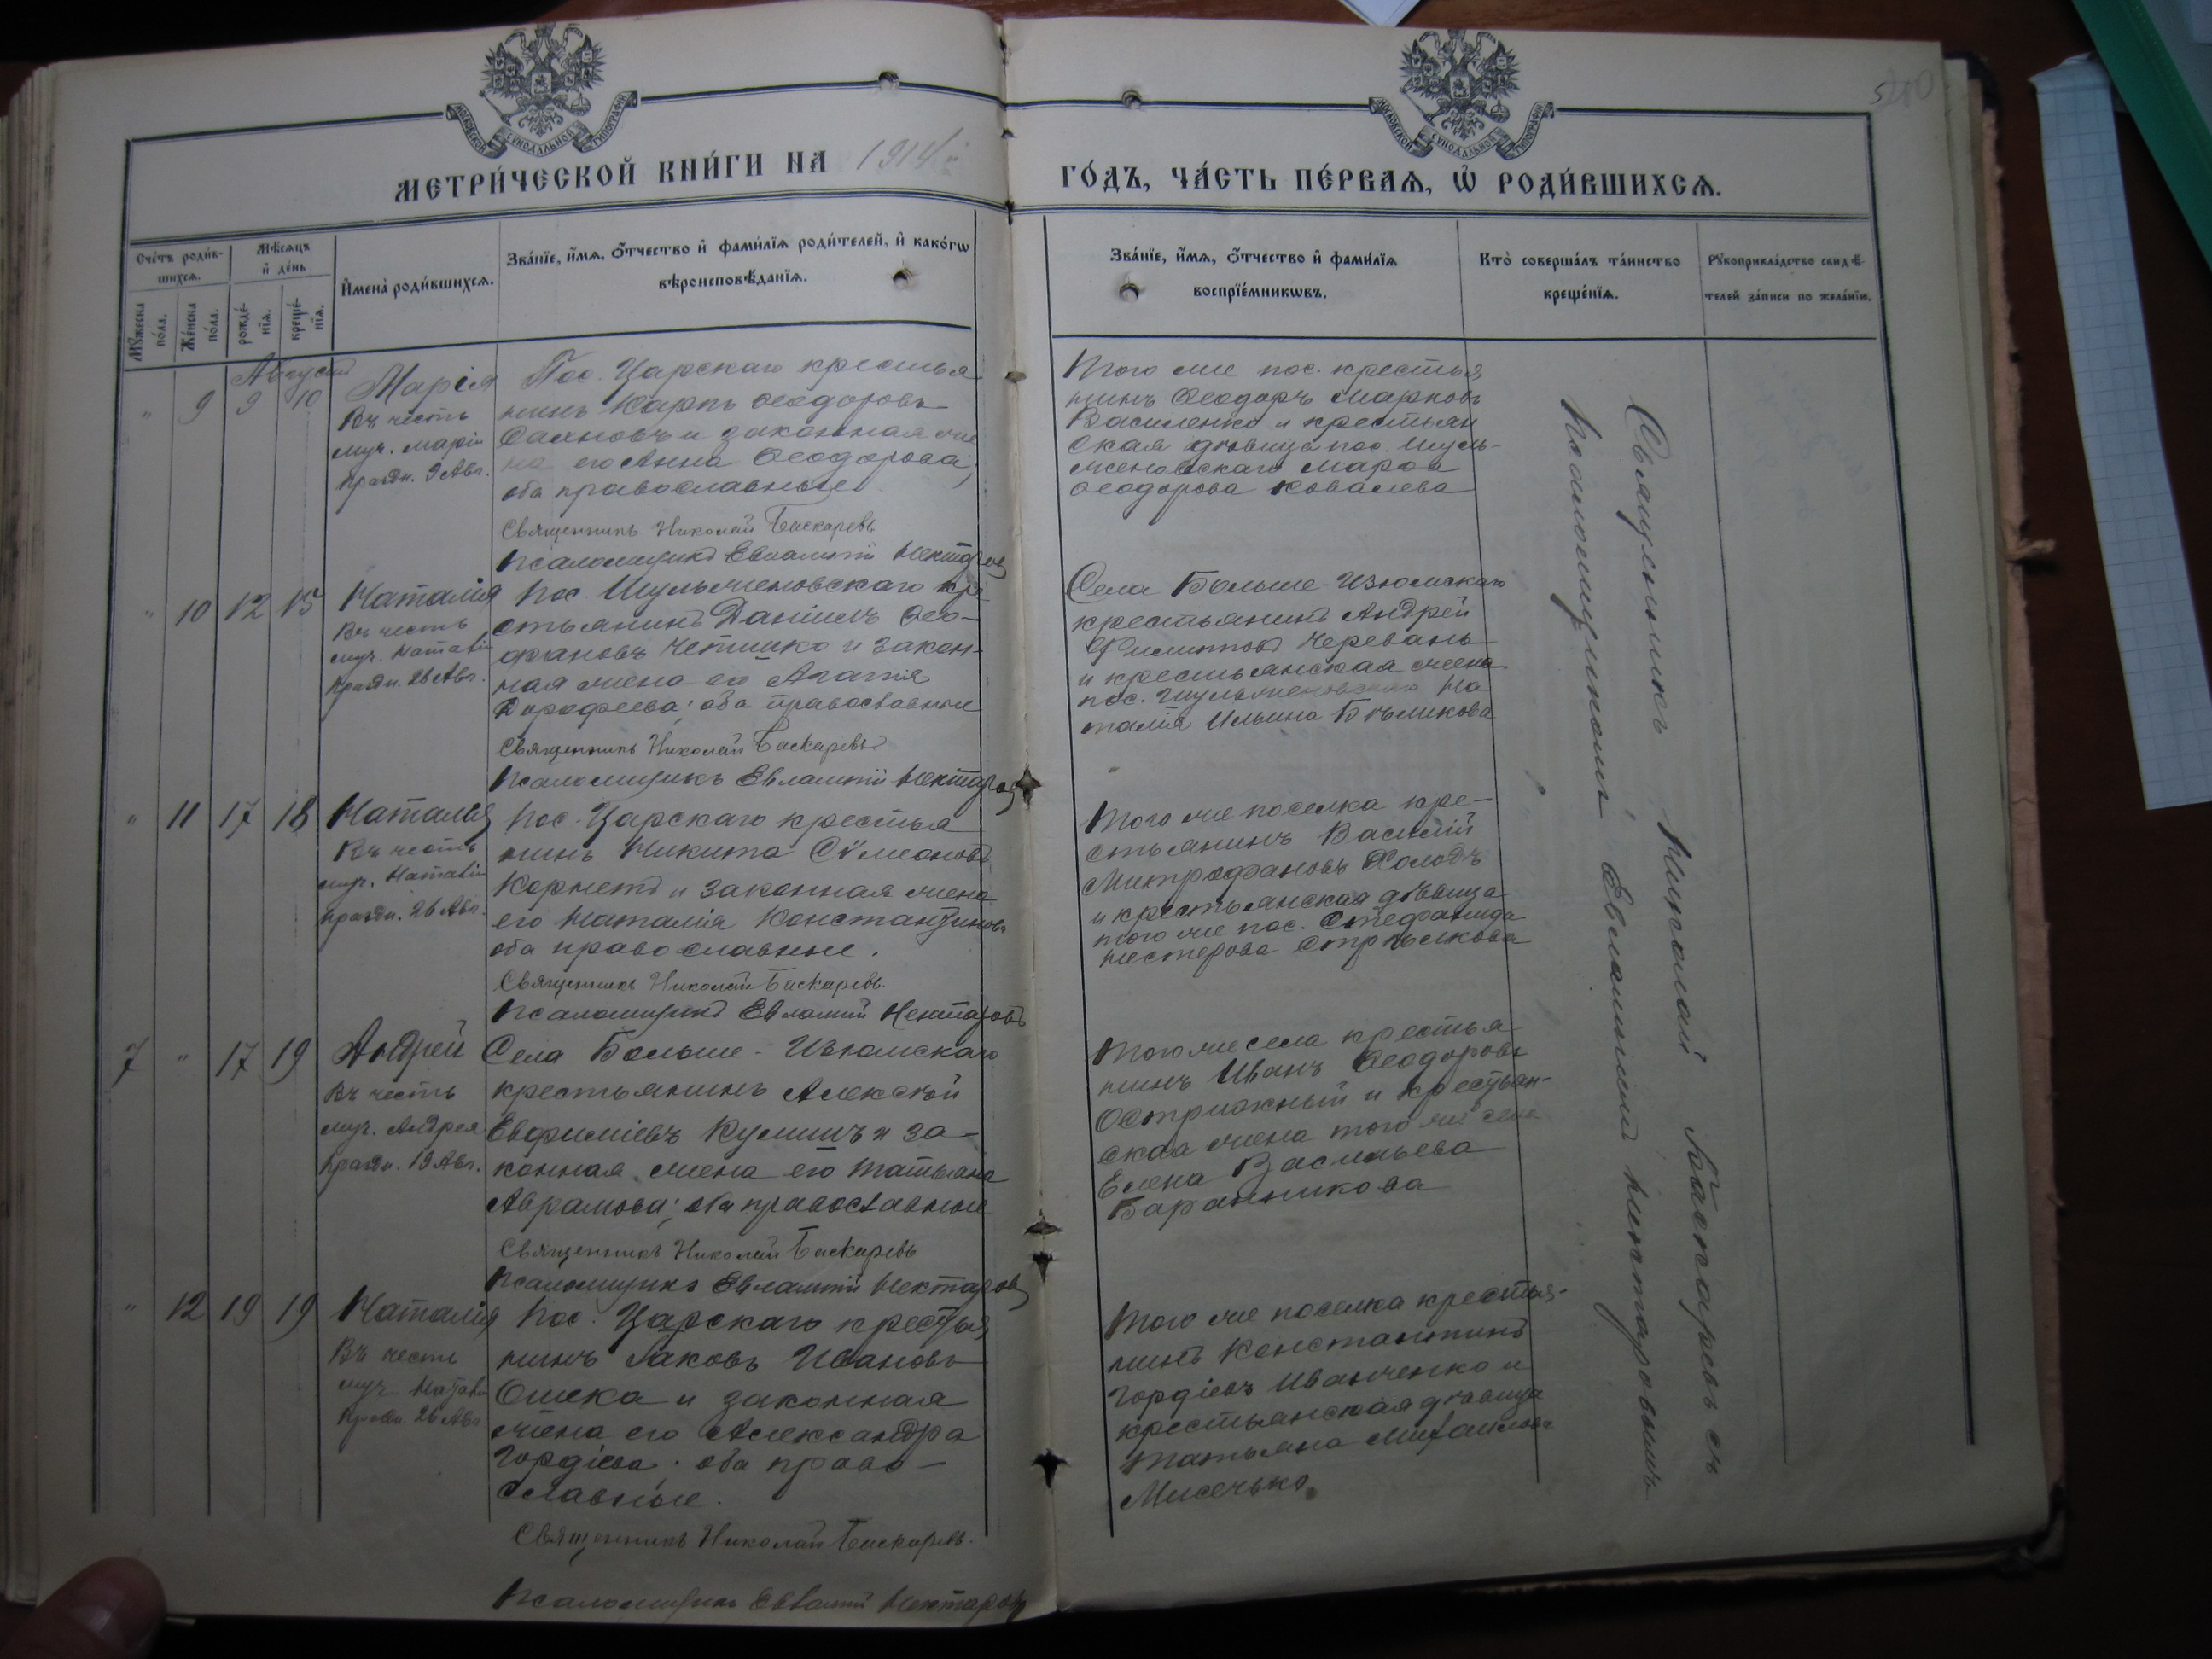 МОСКОВСКОЙ СѴНОДАЛЬНОЙ ТИПОГРАФІИ
МОСКОВСКОЙ СѴНОДАЛЬНОЙ ТИПОГРАФІИ
МЕТРИ́ЧЕСКОЙ КНИ́ГИ НА 1914й
ГО́ДЪ, ЧА́СТЬ ПЕ́РВАѦ, Ѽ РОДИ́ВШИХСѦ.
Сче́тъ роди́в-
шихсѧ.
Мѣ́сѧцъ
и҆ де́нь
Мꙋ́жеска
по́ла.
Же́нска
по́ла.
рожде́-
нїѧ.
креще́-
нїѧ.
И҆мена̀ роди́вшихсѧ.
Зва́нїе, и҆́мѧ, ѻ҆́тчество и҆ фами́лїѧ роди́телей, и҆ како́гѡ
вѣроисповѣ́данїѧ.
Зва́нїе, и҆́мѧ, ѻ҆́тчество и҆ фами́лїѧ
воспрїе́мникѡвъ.
Кто̀ соверша́лъ та́инство
креще́нїѧ.
Рꙋкоприкла́дство свидѣ́-
телей за́писи по жела́нїю.
Августъ
" 9 9 10
Марія
Въ честь
муч. Маріи
праздн. 9 Авг.
Пос. Царскаго крестья
нинъ Карпъ Ѳеодоровъ
Сахновъ и законная же
на его Анна Ѳеодорова,
оба православные
Священникъ Николай Баскаревъ
Псаломщикъ Евлампій Нектаровъ
Того же пос. крестья
нинъ Ѳеодоръ Марковъ
Василенко и крестьян
ская дѣвица пос. Шуль-
женовскаго
Ѳеодорова Ковалева
" 10 12 15
Наталія
Въ честь
муч. Наталіи
праздн. 26 Авг.
Пос. Шульженовскаго кре
стьянинъ Даніилъ Ѳео-
фановъ и закон-
ная жена его Агапія
Дорофеева; оба православные
Священникъ Николай Баскаревъ
Псаломщикъ Евлампій Нектаровъ
Села Больше-Изюмскаго
крестьянинъ Андрей
Филиппов Черевань
и крестьянская жена
пос. Шульженовскаго На
талія Ильина Бѣликова
" 11 17 18
Наталія
Въ честь
муч. Наталіи
праздн. 26 Авг.
Пос. Царскаго крестья
нинъ Никита Сѵмеоновъ
Корнетъ и законная жена
его Наталія Константинова
оба православные.
Священникъ Николай Баскаревъ.
Псаломщикъ Евлампій Нектаровъ
Того же поселка кре-
стьянинъ Василій
Митрофановъ Холодъ
и крестьянская дѣвица
того же пос. Стефанида
Нестерова Стрѣлкова
7 " 17 19
Андрей
Въ честь
муч. Андрея
праздн. 19 Авг.
Села Больше-Изюмскаго
крестьянинъ Алексѣй
Евфиміевъ и за-
конная жена его Татьяна
Аврамова; оба православные
Священникъ Николай Баскаревъ
Псаломщикъ Евлампій Нектаровъ
Того же села крестья
нинъ Иванъ Ѳеодоровъ
Острижный и крестьян-
ская жена того же села
Елена Васильева
Баранникова
" 12 19 19
Наталія
Въ честь
муч. Наталіи
праздн. 26 Авг.
Пос. Царскаго крестья
нинъ Іаковъ Ивановъ
Ошека и законная
жена его Александра
Гордіева; оба право-
славные.
Священникъ Николай Баскаревъ.
Псаломщикъ Евлампій Нектаровъ
Того же поселка крестья-
нинъ Константинъ
Гордіевъ Иванченко и
крестьянская дѣвица
Татьяна Михаилова
Мисечько
Священникъ Николай Баскаревъ съ
псаломщикомъ Евлампіемъ Нектаровымъ